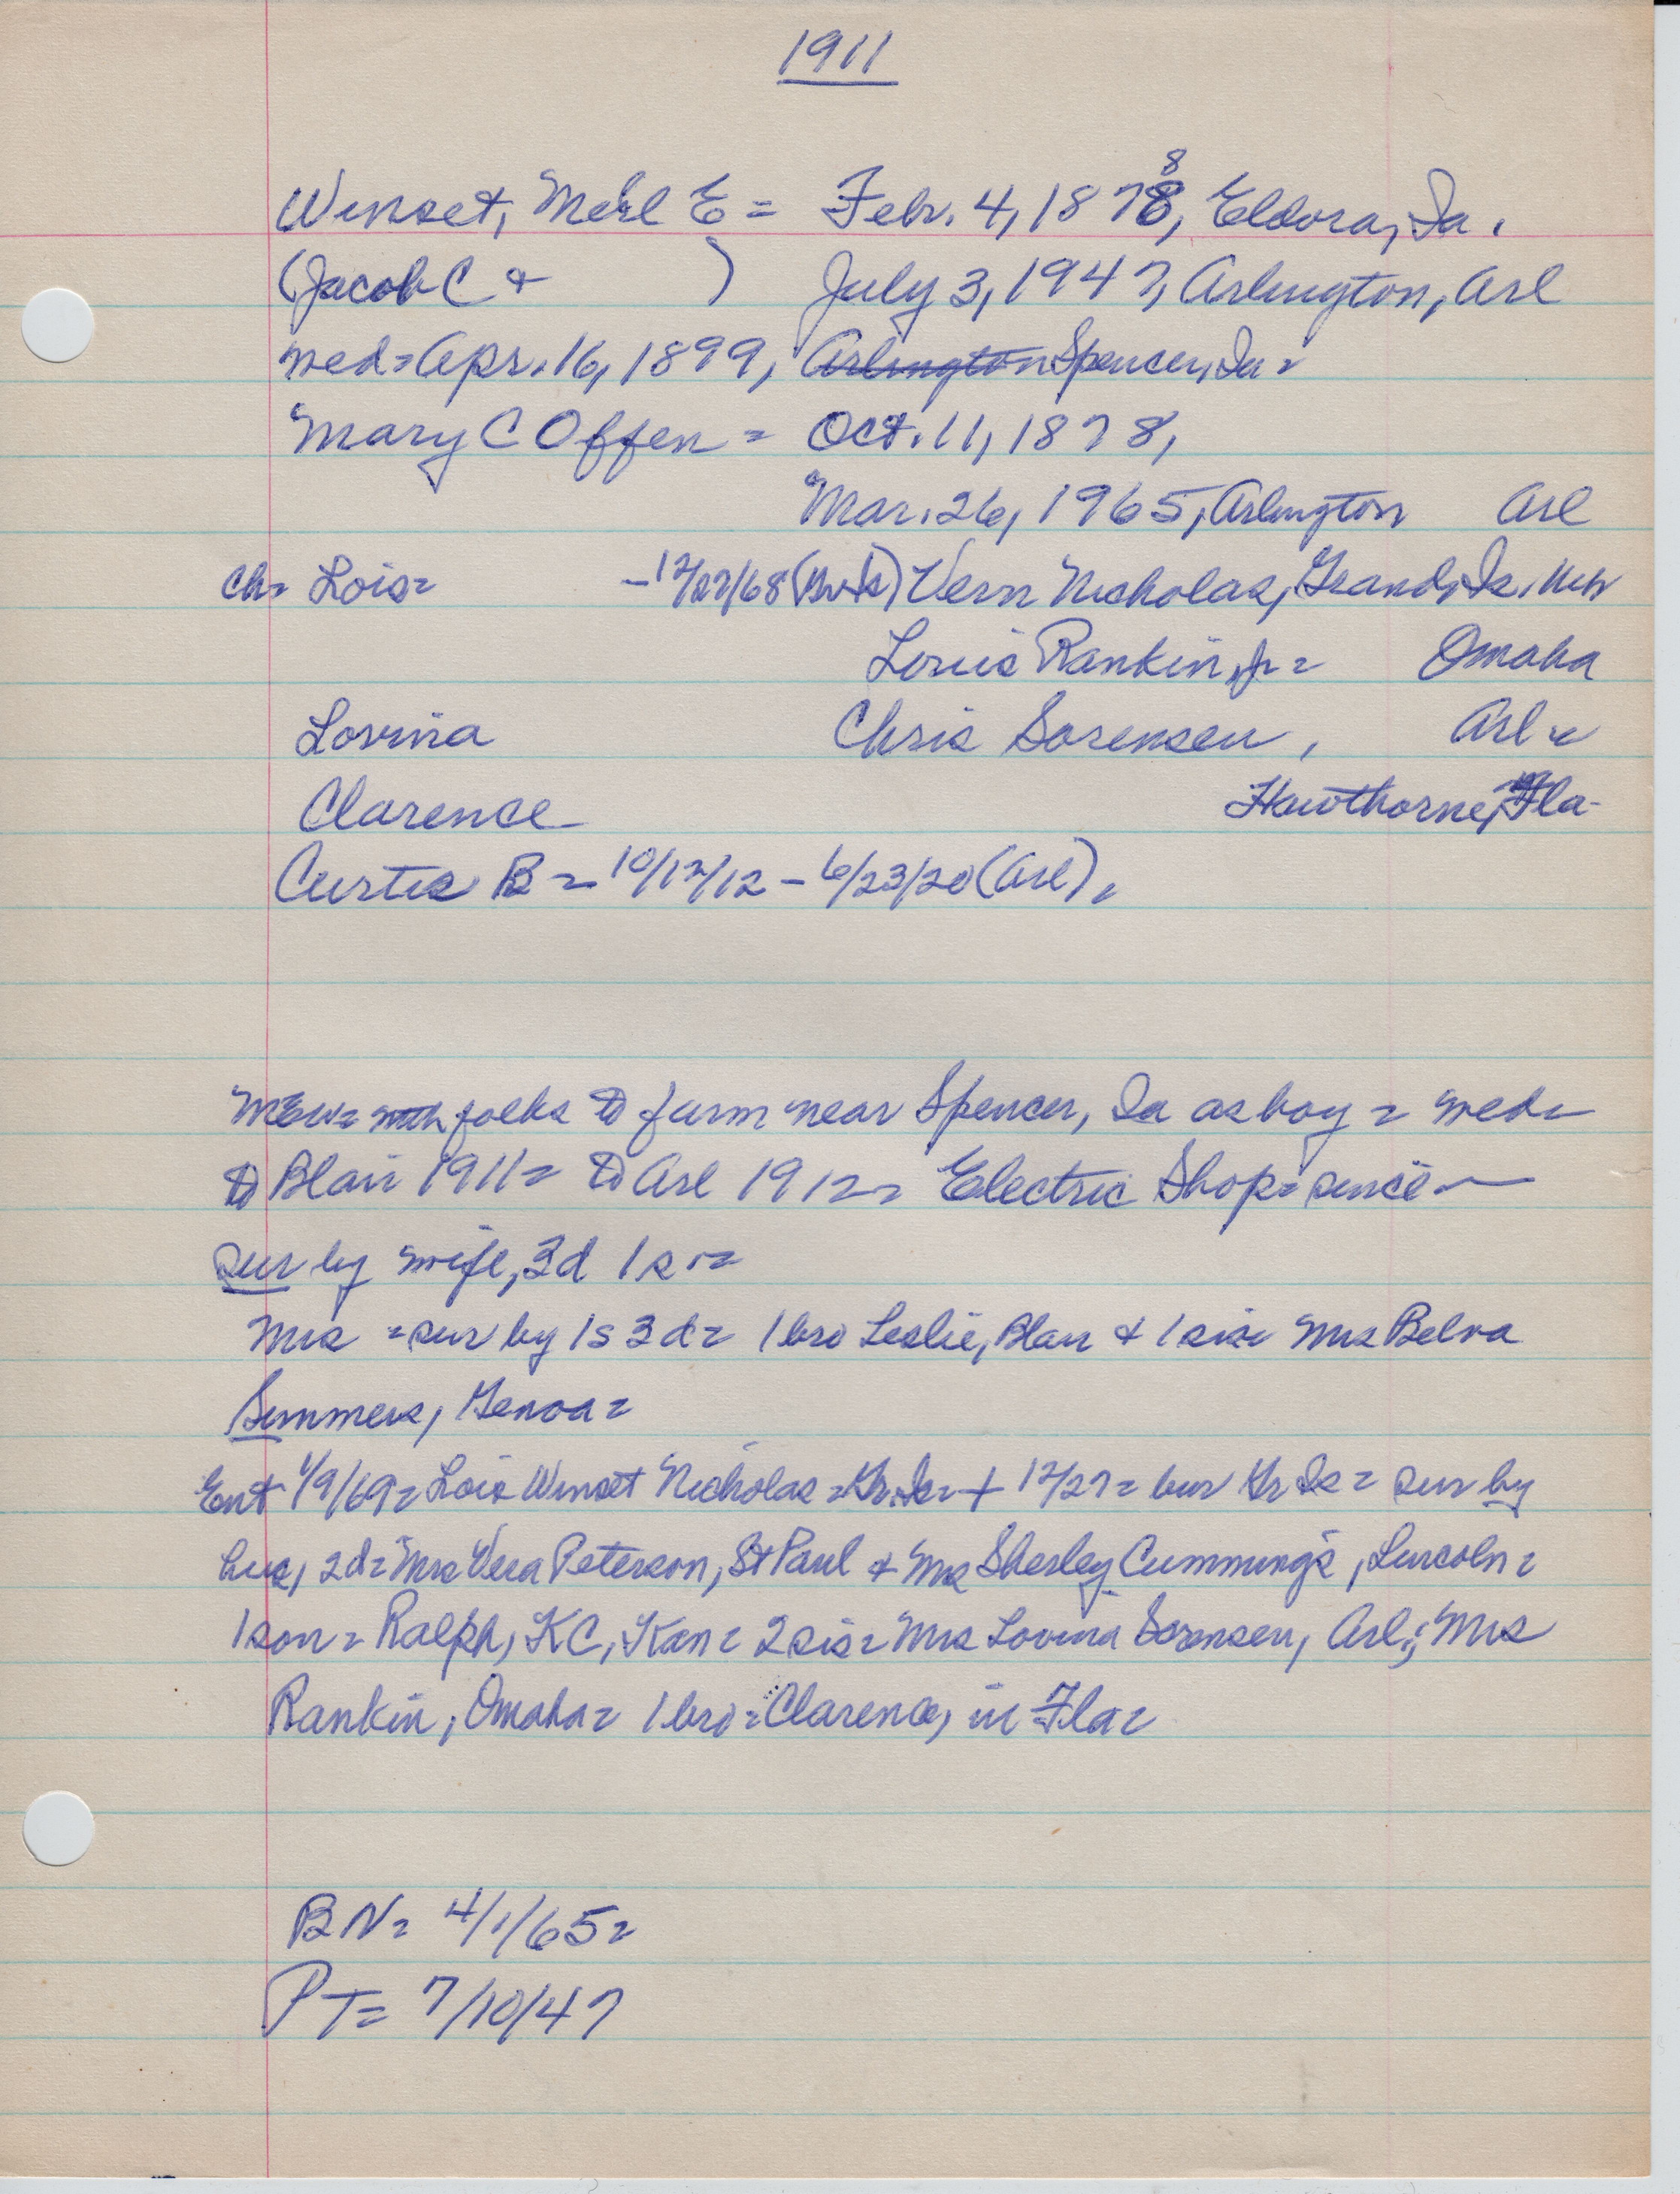 1911
Winset, Merl E = Febr. 4, 1878, 8 Eldora, Ia.
(Jacob C + ) July 3, 1947, Arlington, Arl
wed = Apr. 16, 1899, Arlington Spencer, Ia =
Mary C Offen = Oct. 11, 1878,
Mar. 26, 1965, Arlington Arl
Ch = Lois = - 12/27/68 Vern Nicholas, Grand Is. Neb
Louis Rankin, Jr = Omaha
Lovina Chris Sorensen, Arl =
Clarence Hawthorne, Fla -
Curtis B = 10/12/12 - 6/23/20 (Arl) =
MEW = with folks to farm near Spencer, Ia as boy = wed =
to Blair 1911 = to Arl 1912 = Electric Shop = since -
sur by wife, 3d 1s =
Mrs = sur by 1s 3d = 1 bro Leslie, Blair + 1 sis = Mrs Belva
Summers, Genoa =
Ent 1/9/69 = Lois Winset Nicholas = Gr. Is = + 12/27 = bur Gr Is = sur by
hus, 2d = Mrs Vera Peterson, St Paul + Mrs Sherley Cummings, Lincoln =
1 son = Ralph, KC, Kan = 2 sis = Mrs Lovina Sorensen, Arl; Mrs
Rankin, Omaha = 1 bro = Clarence, in Fla =
BN = 4/1/65 =
PT = 7/10/47